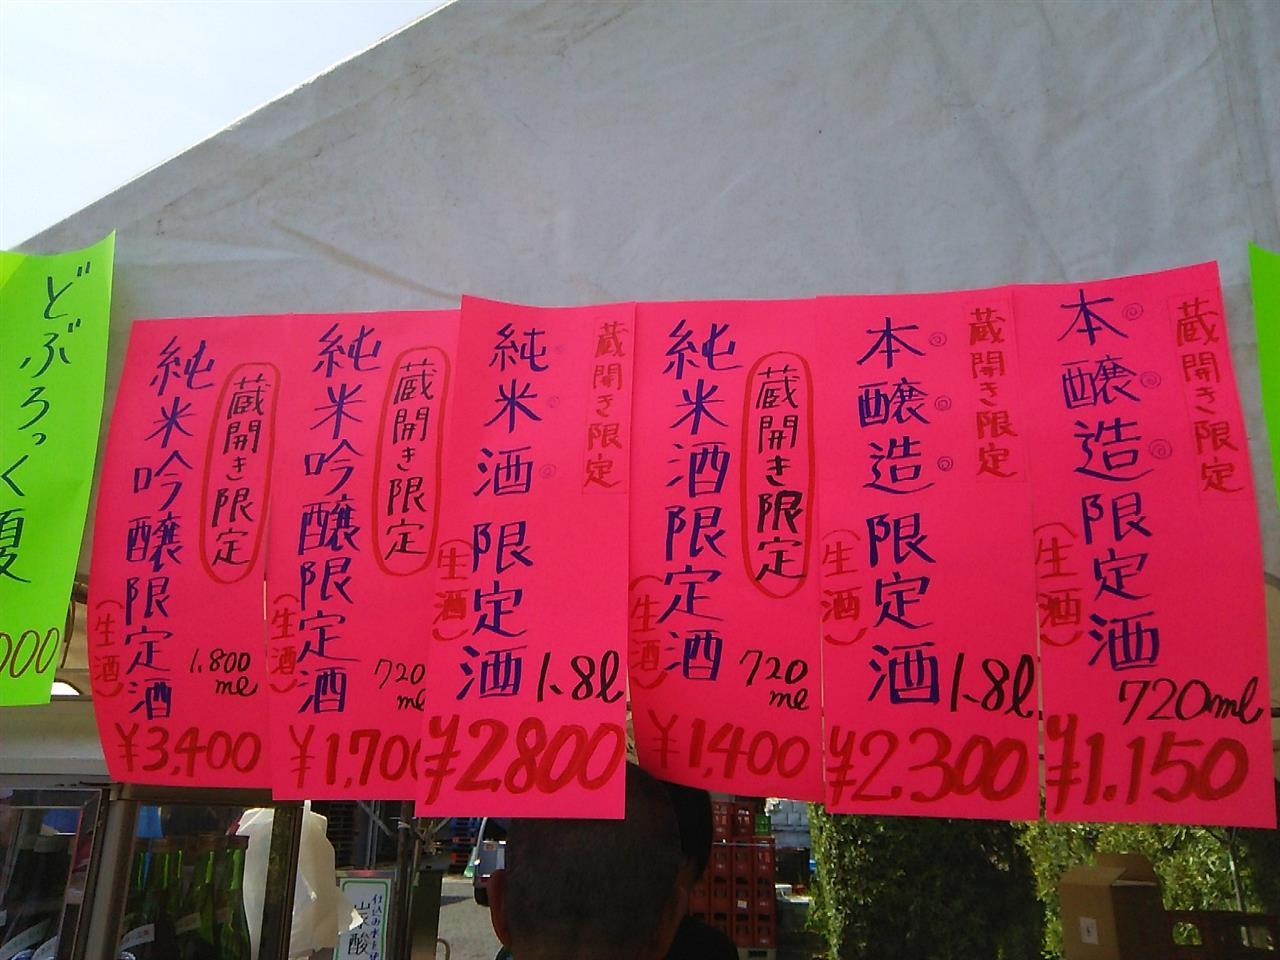 蔵開き限定
本醸造限定酒
(生酒)
720ml
¥1.150
蔵開き限定
本醸造限定酒
(生酒)
1.8l
¥2.300
蔵開き限定
純米酒限定酒
(生酒)
720
ml
¥1,400
蔵開き限定
純米酒限定酒
(生酒)
1.8l
¥2.800
蔵開き限定
純米吟醸限定酒
(生酒)
720
ml
¥1,700
蔵開き限定
純米吟醸限定酒
(生酒)
1.800
ml
¥3,400
どぶろっく夏
000
仕込み水を使
炭酸